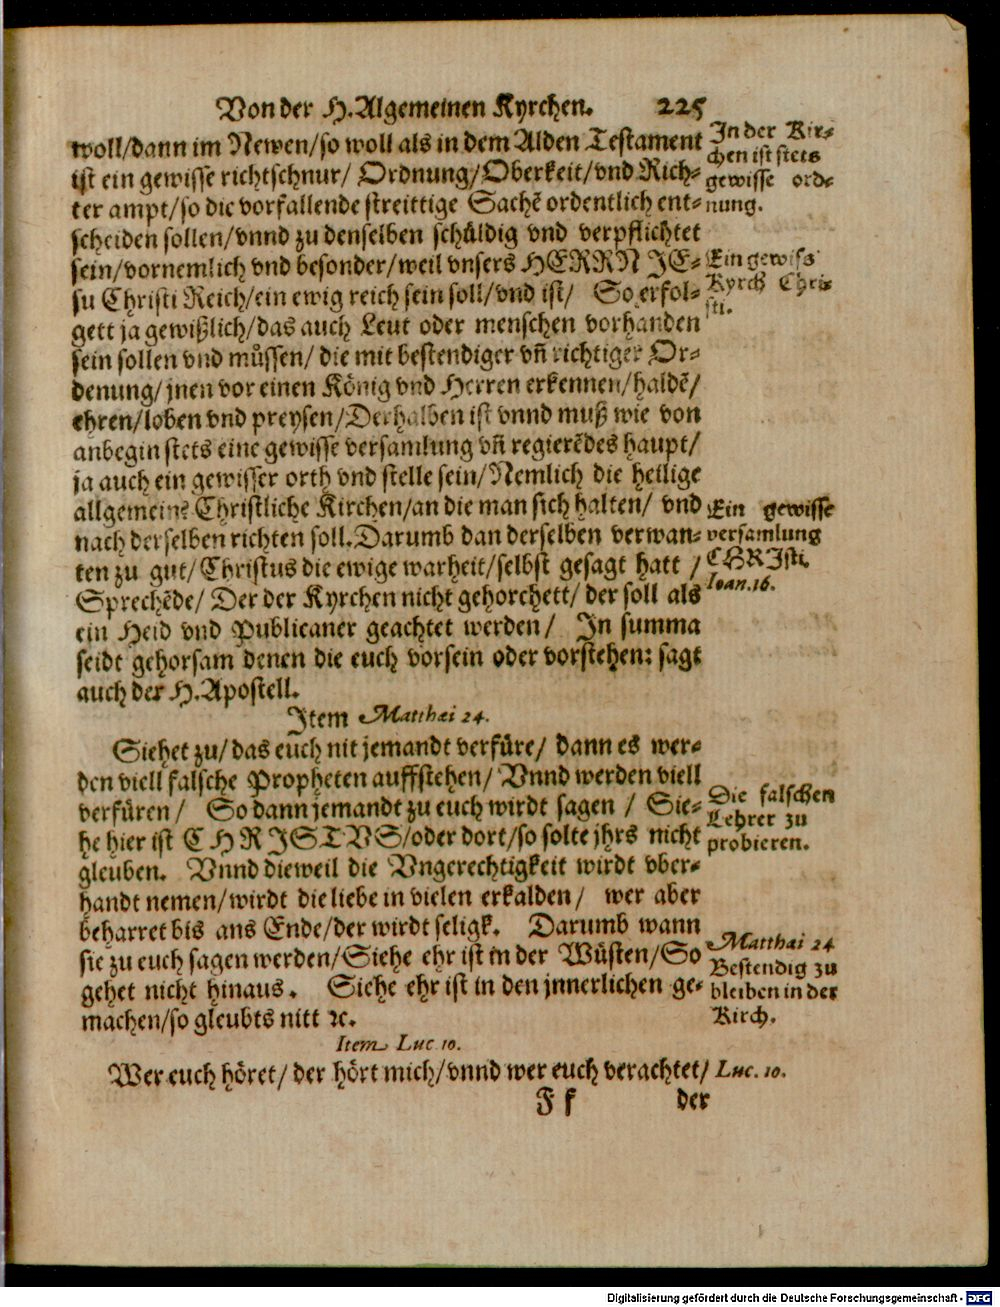 Von der H. Algemeinen Kyrchen. 225
woll/dann im Newen/so woll als in dem Alden Testament
ist ein gewisse richtschnur/ Ordnung/Oberkeit/vnd Rich-
ter ampt/so die vorfallende streittige Sachẽ ordentlich ent-
scheiden sollen/vnnd zu denselben schüldig vnd verpflichtet
sein/vornemlich vnd besonder/weil vnsers HERRN JE-
su Christi Reich/ein ewig reich sein soll/vnd ist/ So erfol-
gett ja gewißlich/das auch Leut oder menschen vorhanden
sein sollen vnd müssen/ die mit bestendiger vñ richtiger Or-
denung/jnen vor einen König vnd Herren erkennen/haldẽ/
ehren/loben vnd preysen/Derhalben ist vnnd muß wie von
anbegin stets eine gewisse versamlung vñ regierẽdes haupt/
ja auch ein gewisser orth vnd stelle sein/Nemlich die heilige
allgemeine Christliche Kirchen/an die man sich halten/ vnd
nach derselben richten soll. Darumb dan derselben verwan-
ten zu gut/Christus die ewige warheit/selbst gesagt hatt /
Sprechẽde/ Der der Kyrchen nicht gehorchett/ der soll als
ein Heid vnd Publicaner geachtet werden/ In summa
seidt gehorsam denen die euch vorsein oder vorstehen: sagt
auch der H. Apostell.
In der Kir-
chen ist stets
gewisse ord-
nung.
Ein gewiss
Kyrch Chri-
sti.
Ein gewisse
versamlung
CHRIsti.
Ioan. 16.
Item Matthæi 24.
Siehet zu/ das euch nit jemandt verfüre/ dann es wer-
den viell falsche Propheten auffstehen/ Vnnd werden viell
verfüren / So dann jemandt zu euch wirdt sagen / Sie-
he hier ist CHRISTVS/oder dort/so solte jhrs nicht
gleuben. Vnnd dieweil die Vngerechtigkeit wirdt vber-
handt nemen/wirdt die liebe in vielen erkalden/ wer aber
beharret bis ans Ende/der wirdt seligk. Darumb wann
sie zu euch sagen werden/Siehe ehr ist in der Wüsten/So
gehet nicht hinaus. Siehe ehr ist in den jnnerlichen ge-
machen/so gleubts nitt ꝛc.
Die falschen
Lehrer zu
probieren.
Matthæi 24
Bestendig zu
bleiben in der
Kirch.
Item Luc. 10.
Wer euch höret/ der hört mich/vnnd wer euch verachtet/
Luc. 10.
F f der
Digitalisierung gefördert durch die Deutsche Forschungsgemeinschaft - DFG